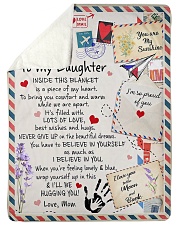 To My Daughter
INSIDE THIS BLANKET
is a piece of my heart.
To bring you comfort and warm
while we are apart.
It's filled with
LOTS OF LOVE,
best wishes and hugs.
NEVER GIVE UP on the beautiful dreams.
You have to BELIEVE IN YOURSELF
as much as
I BELIEVE IN YOU.
When you're feeling lonely & blue
wrap yourself up in this
& I'LL BE
HUGGING YOU!
Love, Mom
You are
My
Sunshine
I'm so proud
of you
I love you
to the
Moon
and
Back